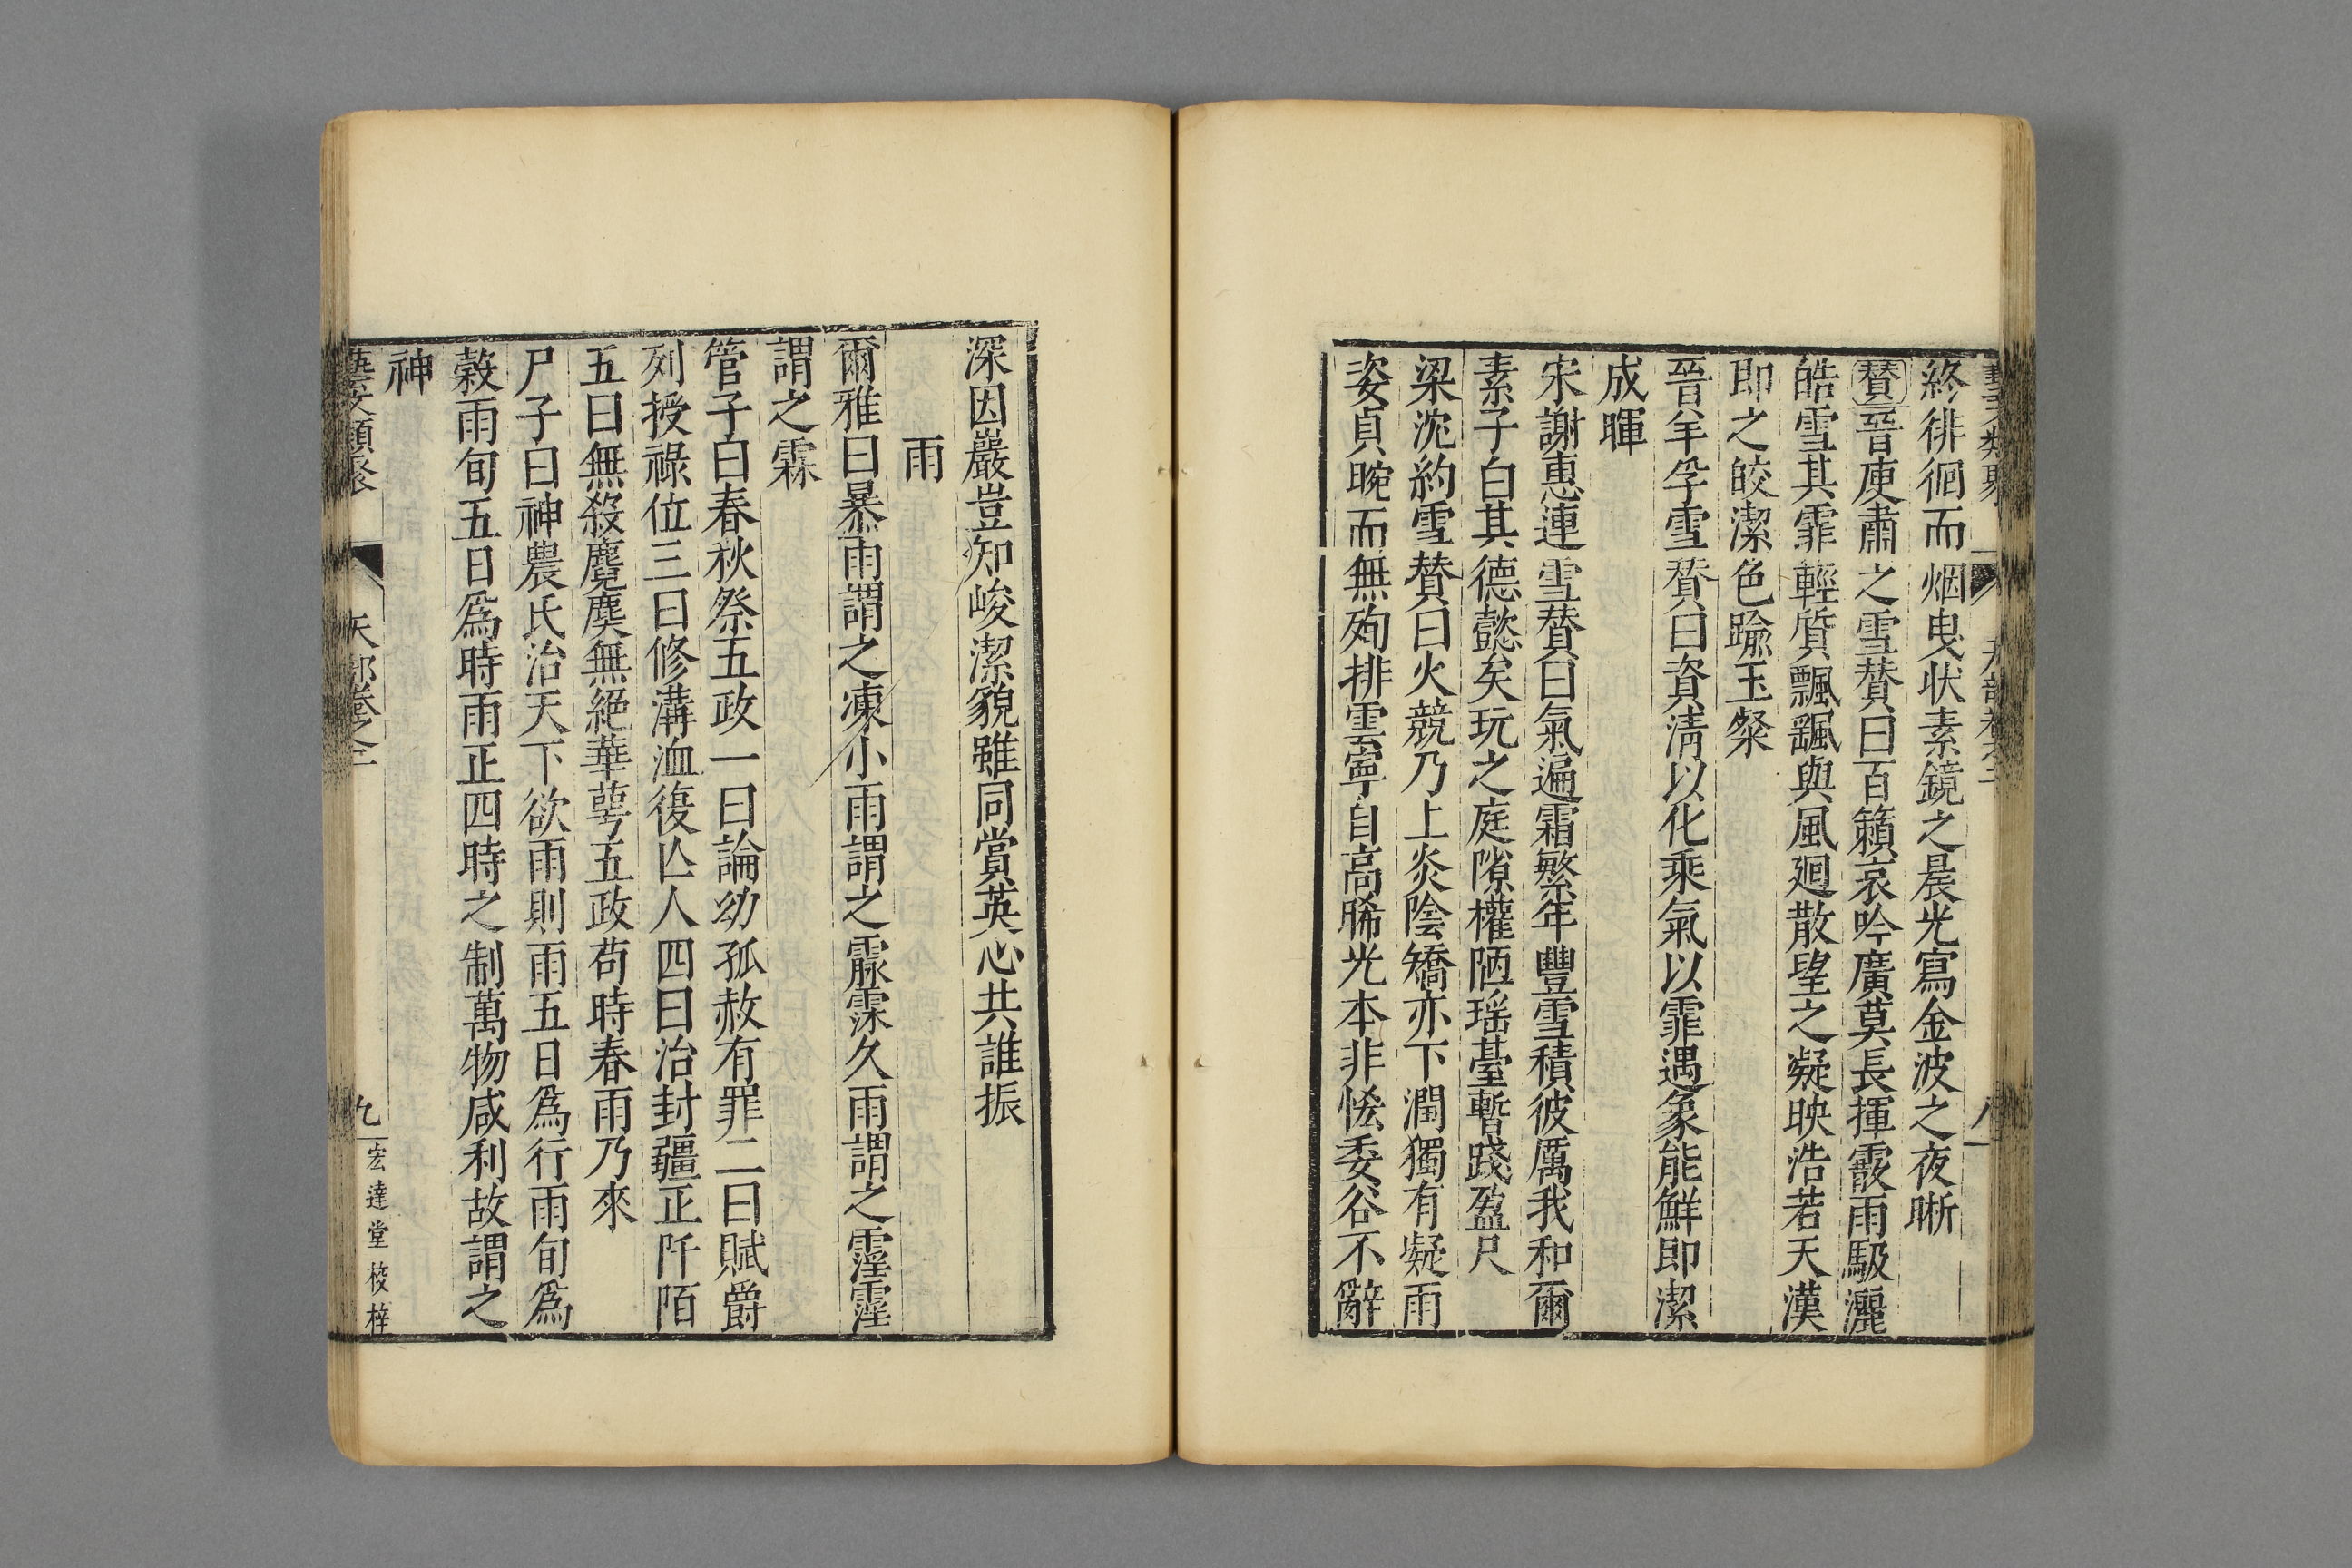 終徘徊而烟曳状素鏡之晨光寫金波之夜晰
賛晉庾肅之雪賛曰百籟哀吟廣莫長揮霰雨馺灑
皓雪其霏輕質飄颻與風廻散望之凝映浩若天漢
即之皎潔色踰玉粲
晉羊孚雪賛曰資清以化乘氣以霏遇象能鮮即潔
成暉
宋謝惠連雪賛曰氣遍霜繁年豐雪積彼厲我和爾
素子白其德懿矣玩之庭隙權陋瑶臺暫踐盈尺
梁沈約雪賛曰火競乃上炎陰矯亦下潤獨有凝雨
姿貞晼而無殉排雲寧自高睎光本非恡委谷不辭
深因巖豈知峻潔貌雖同賞英心共誰振
雨
爾雅曰暴雨謂之涷小雨謂之霢霂久雨謂之霪霪
謂之霖
管子曰春秋祭五政一曰論幼孤赦有罪二曰賦爵
列授祿位三曰修溝洫復亾人四曰治封疆正阡陌
五曰無殺麑麌無絕華蕚五政苟時春雨乃來
尸子曰神農氏治天下欲雨則雨五日爲行雨旬爲
穀雨旬五日爲時雨正四時之制萬物咸利故謂之
神
藝文類聚 天部卷之二 九 宏達堂校梓